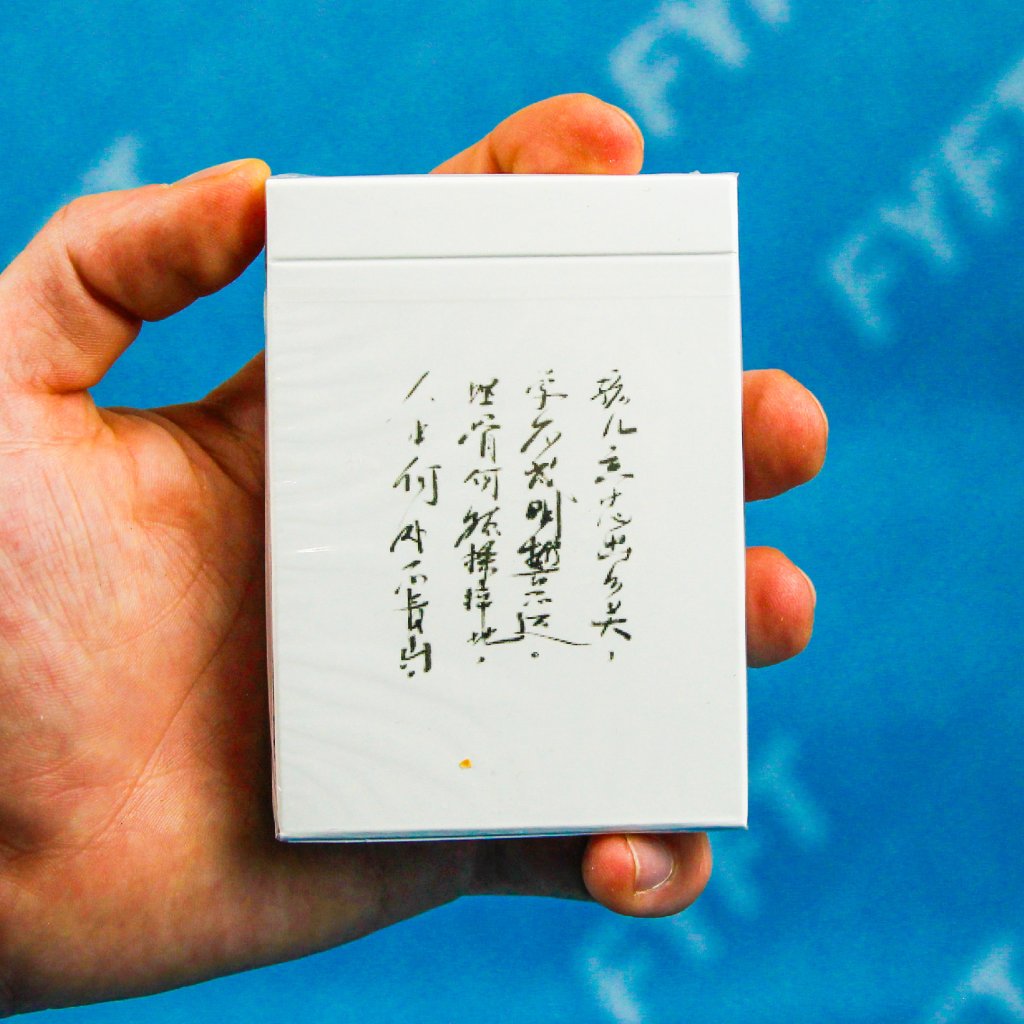 孩儿立志出乡关，
学不成名誓不还。
埋骨何须桑梓地，
人生何处不青山。